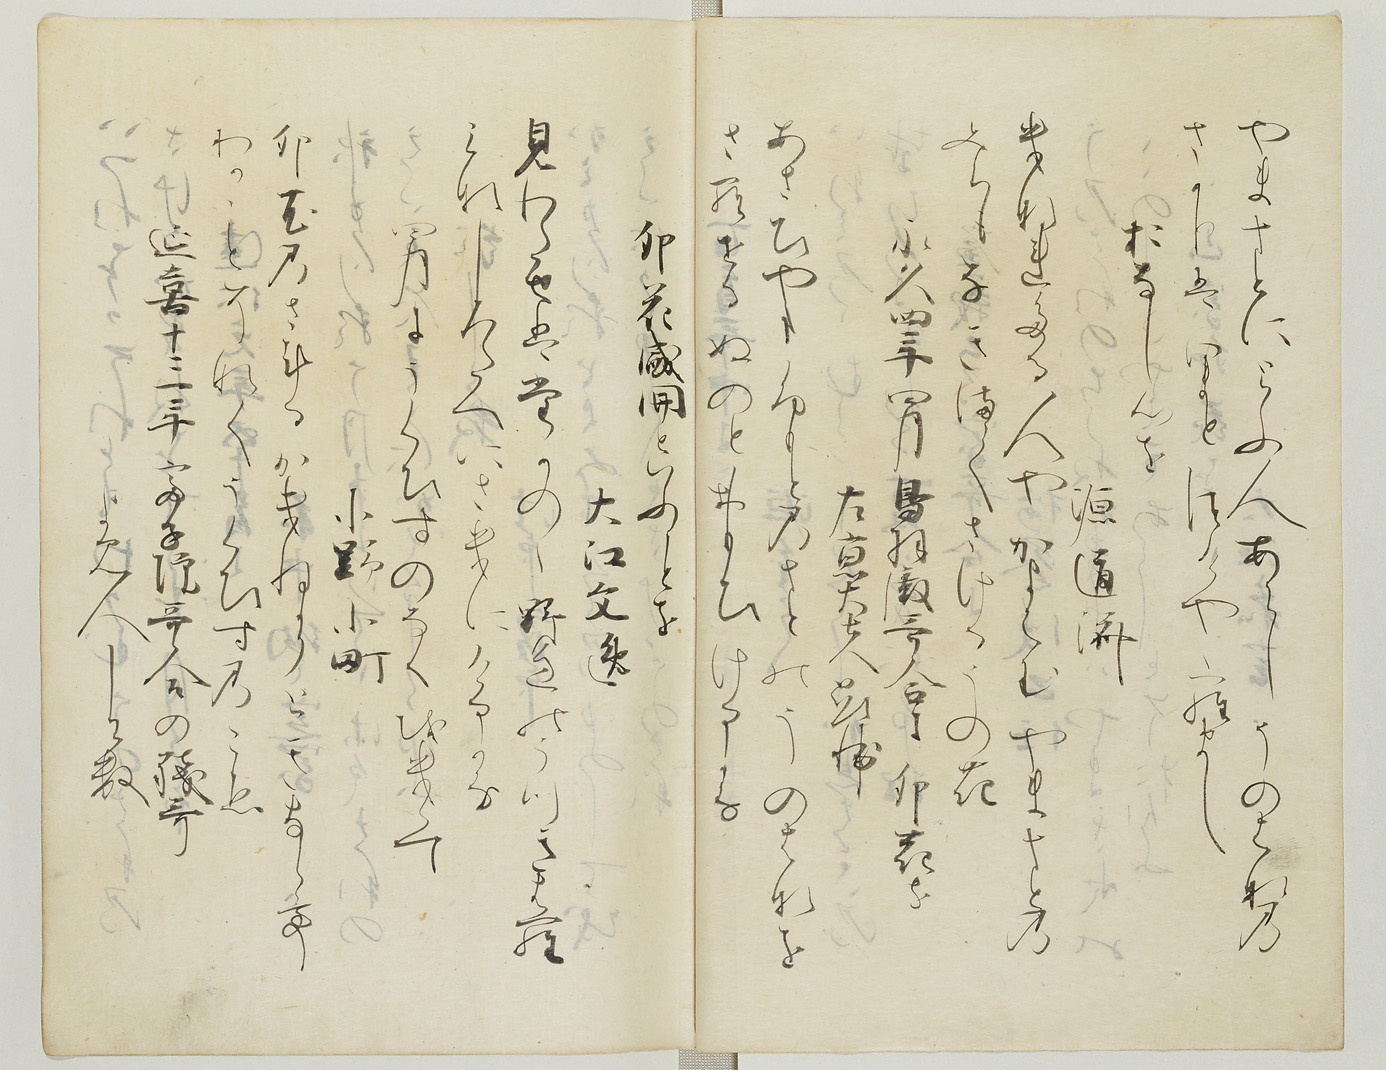 やまさとにとふ人あらしうのはなの
おなし心を
源道済
人やかよはむやまさとの
みちもなきまてさけるうの花
永久四年四月鳥羽殿哥合に卯花を
左京大夫顕輔
あさひやまふもとのさとのうのはなを
さらせるぬのとおもひけるかな
卯花盛開といふことを
大江文
見わたせは野辺のうつきはら
みなしろたへにさきにけるかな
四月にうくひすのなくをきゝて
小野小町
卯花のさけるかきねにときならて
わかことそなくうくひすのこゑ
延喜十三年亭子院哥合の残哥
よみ人しらす